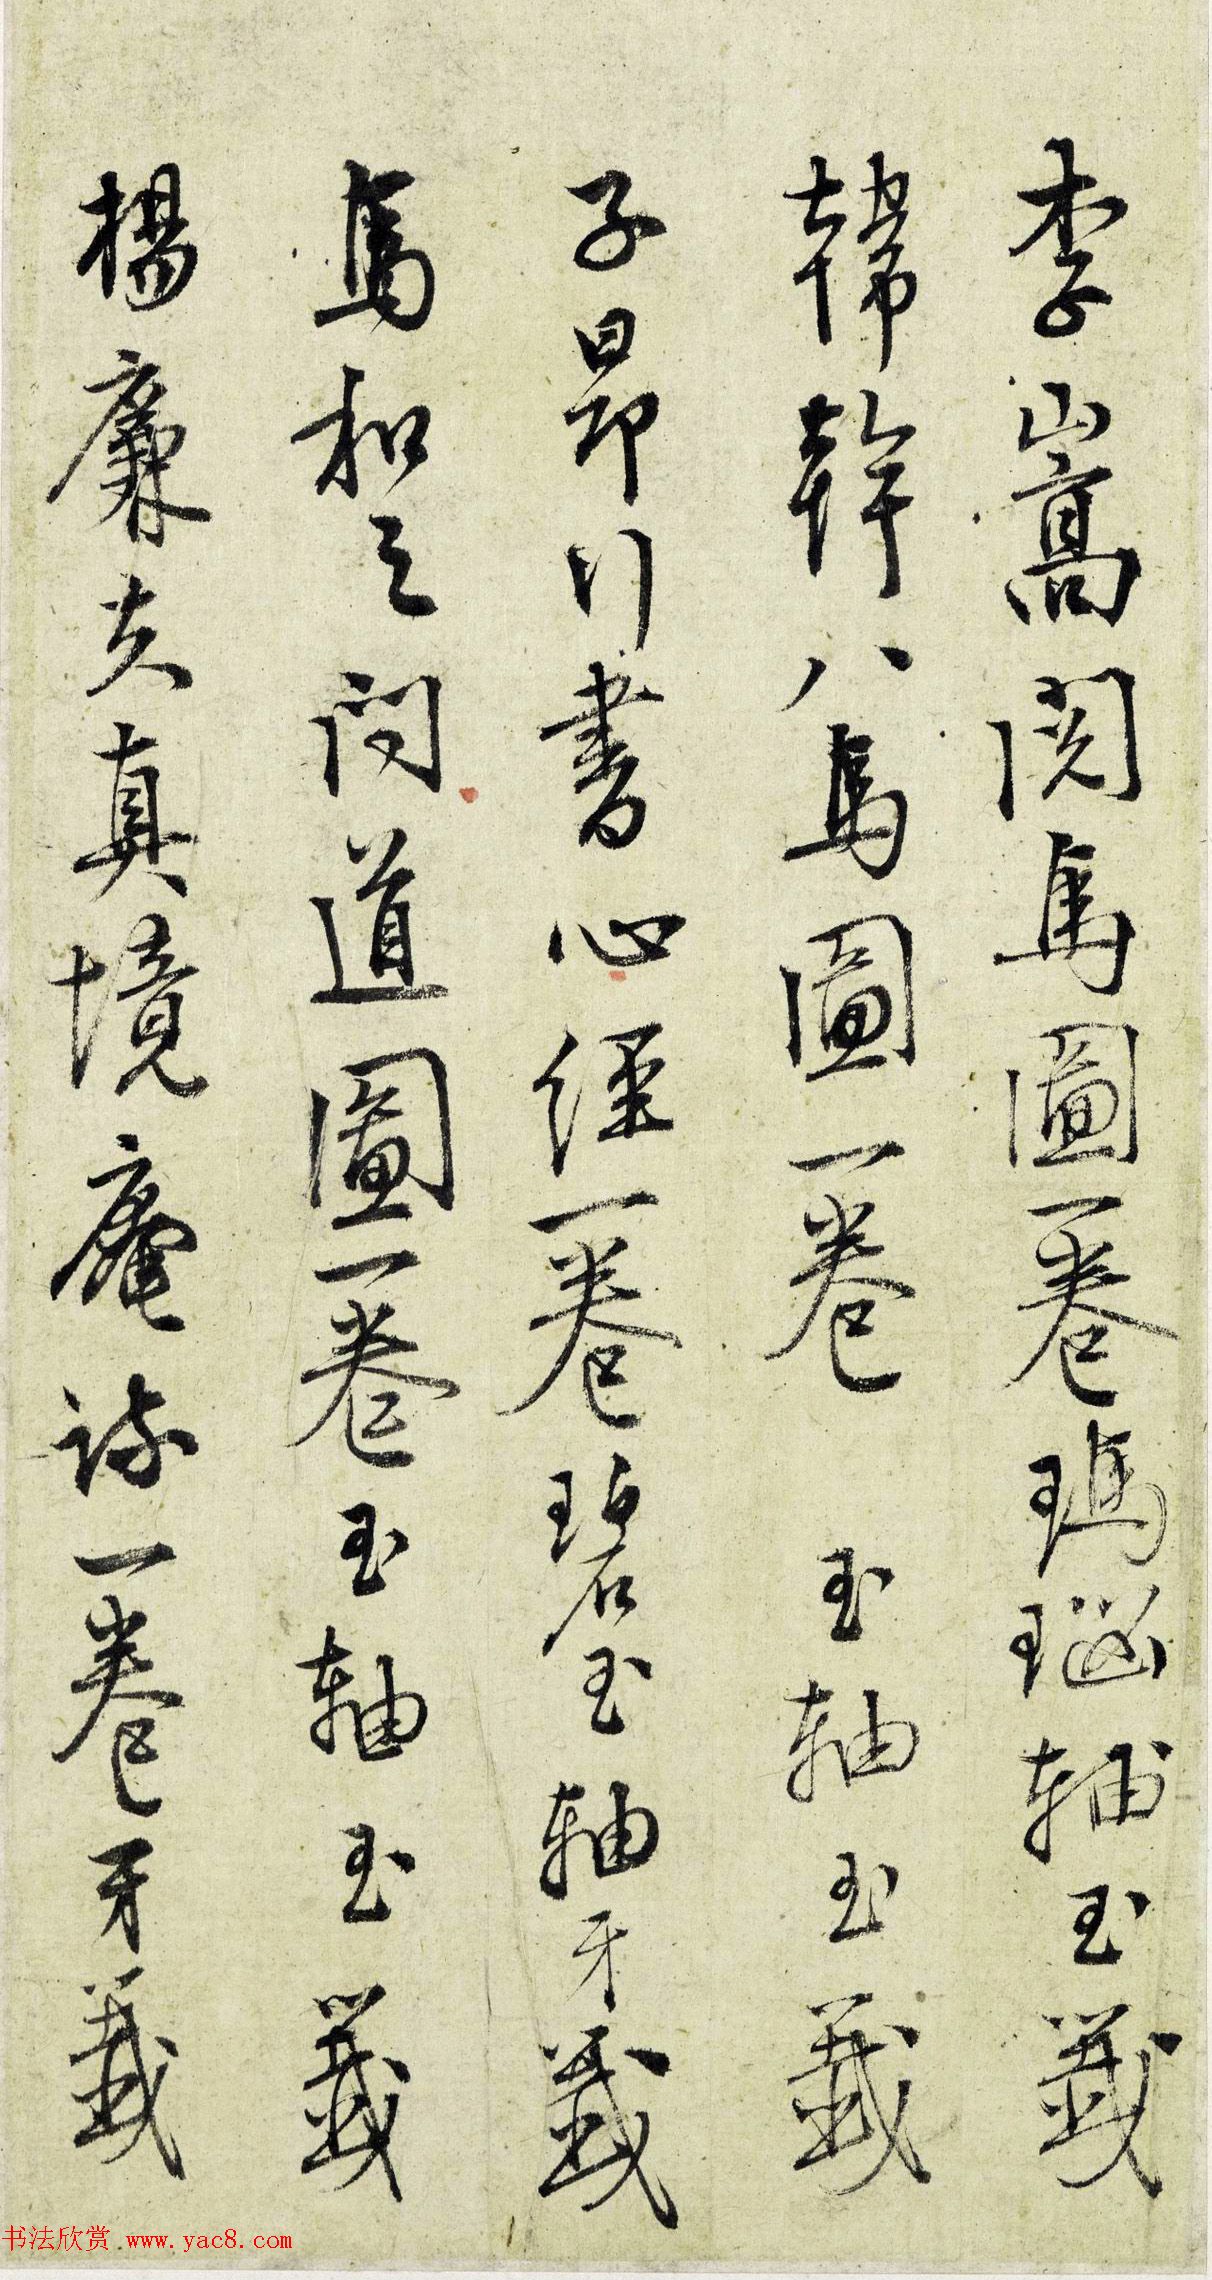 李嵩閱馬圖一卷瑪瑙軸玉籤
韓幹八馬圖一卷玉軸玉籤
子昂行書心經一卷碧玉軸牙籤
馬和之問道圖一卷玉軸玉籤
楊廉夫真境庵詩一卷牙籤
书法欣赏 www.yac8.com